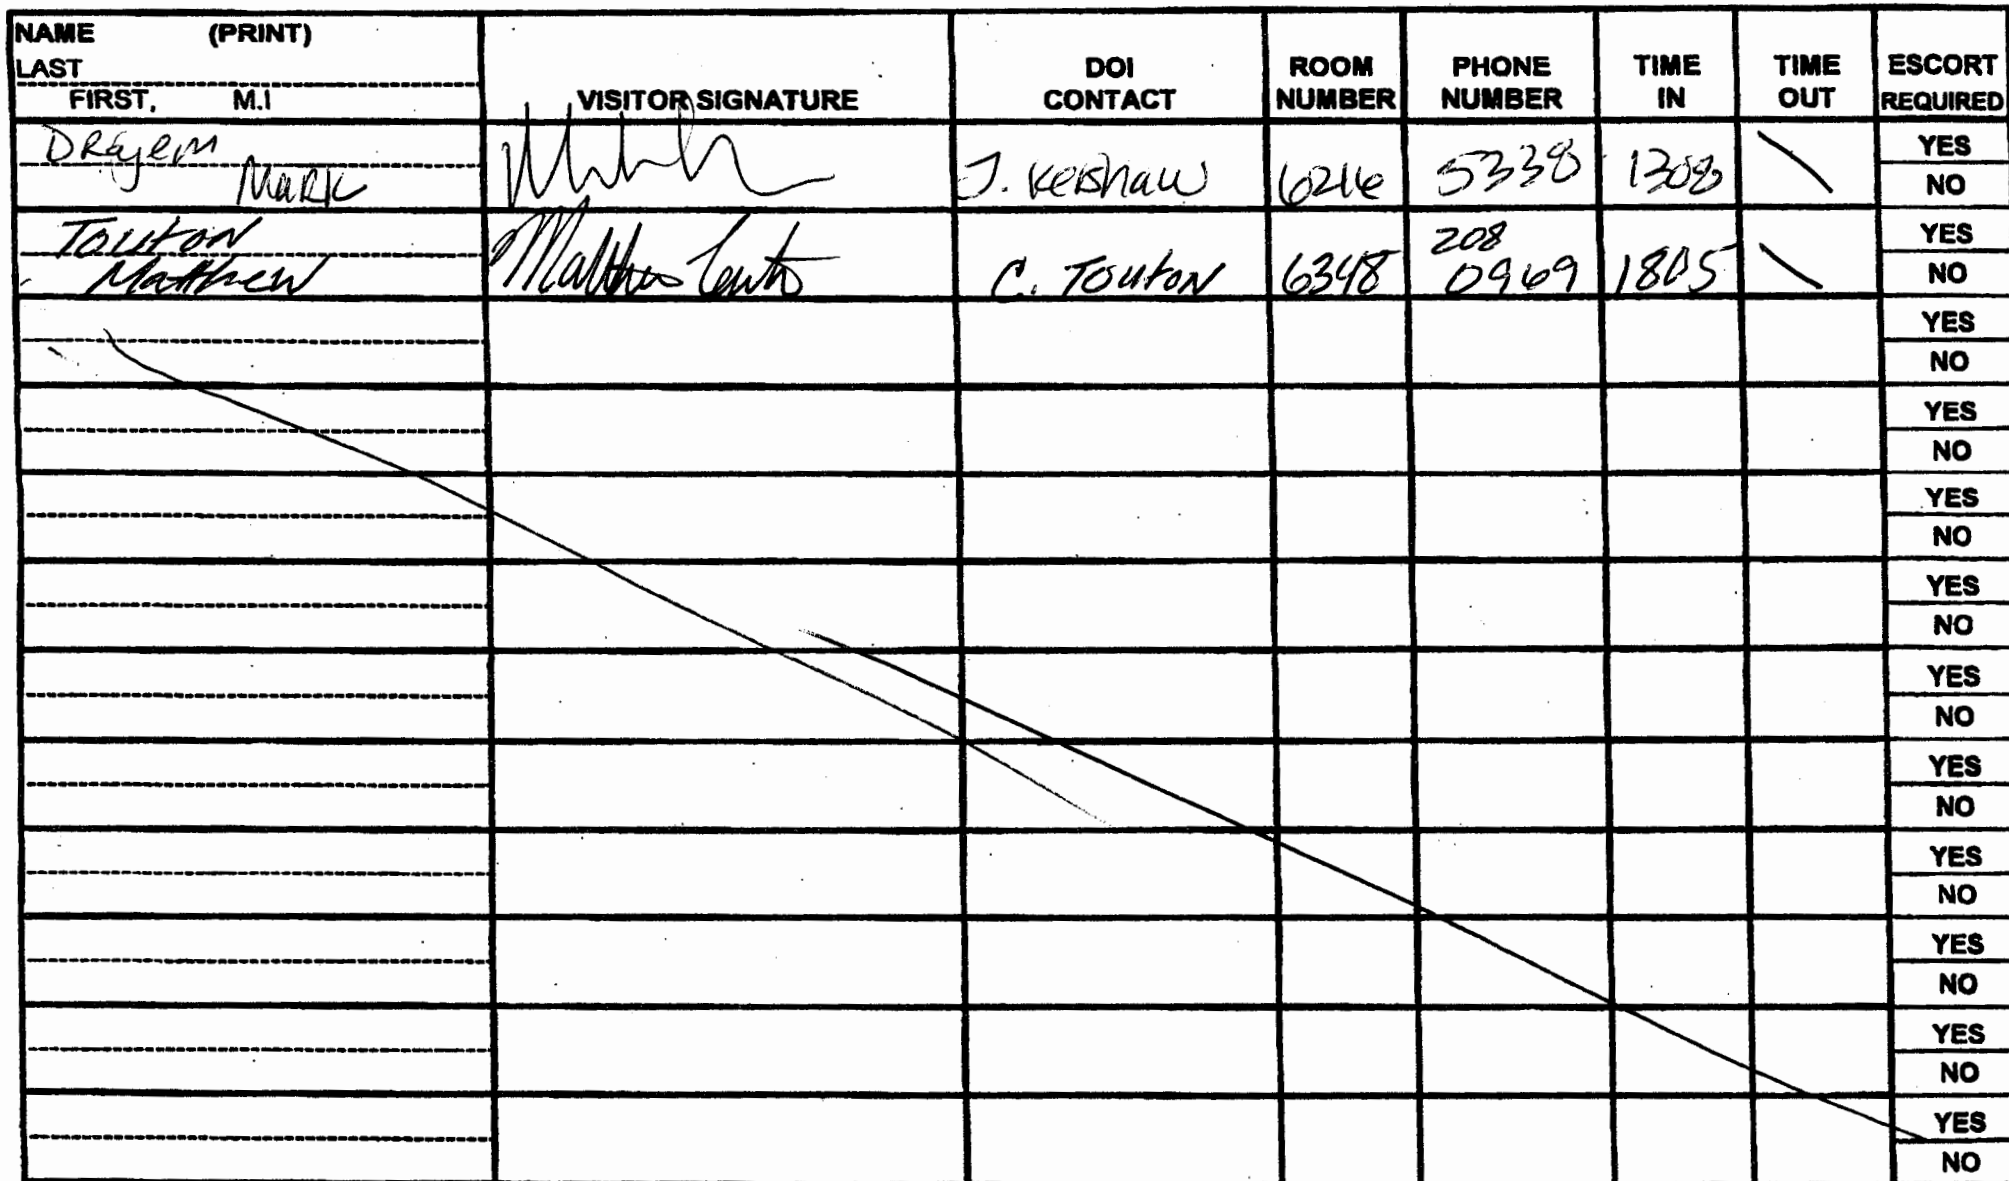 NAME (PRINT)
LAST
FIRST, M.I
VISITOR SIGNATURE
DOI CONTACT
ROOM NUMBER
PHONE NUMBER
TIME IN
TIME OUT
ESCORT REQUIRED
Mark
J. Kershaw 5338 1308
YES
NO
Touton
Matthew
Matthew
C. Touton 6348 208 0969 1805
YES
NO
YES
NO
YES
NO
YES
NO
YES
NO
YES
NO
YES
NO
YES
NO
YES
NO
YES
NO
YES
NO